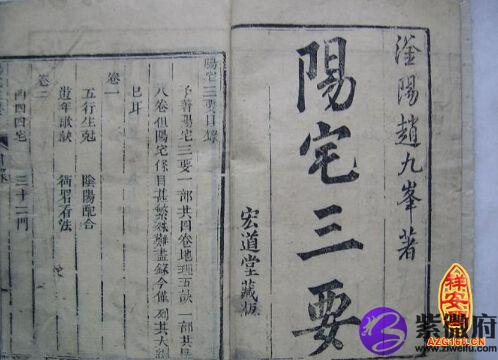 滏陽趙九峯著
陽宅三要
宏道堂藏板
陽宅三要目錄
予著陽宅三要一部共四卷地理五訣一部共是
八卷但陽宅條目甚繁難盡錄今僅列其大
已耳
卷一
五行生剋 陰陽配合
遊年歌訣 看法
卷二
四四宅 三十二門
祥安阁
AZG168.CN
紫微府
www.ziweifu.com